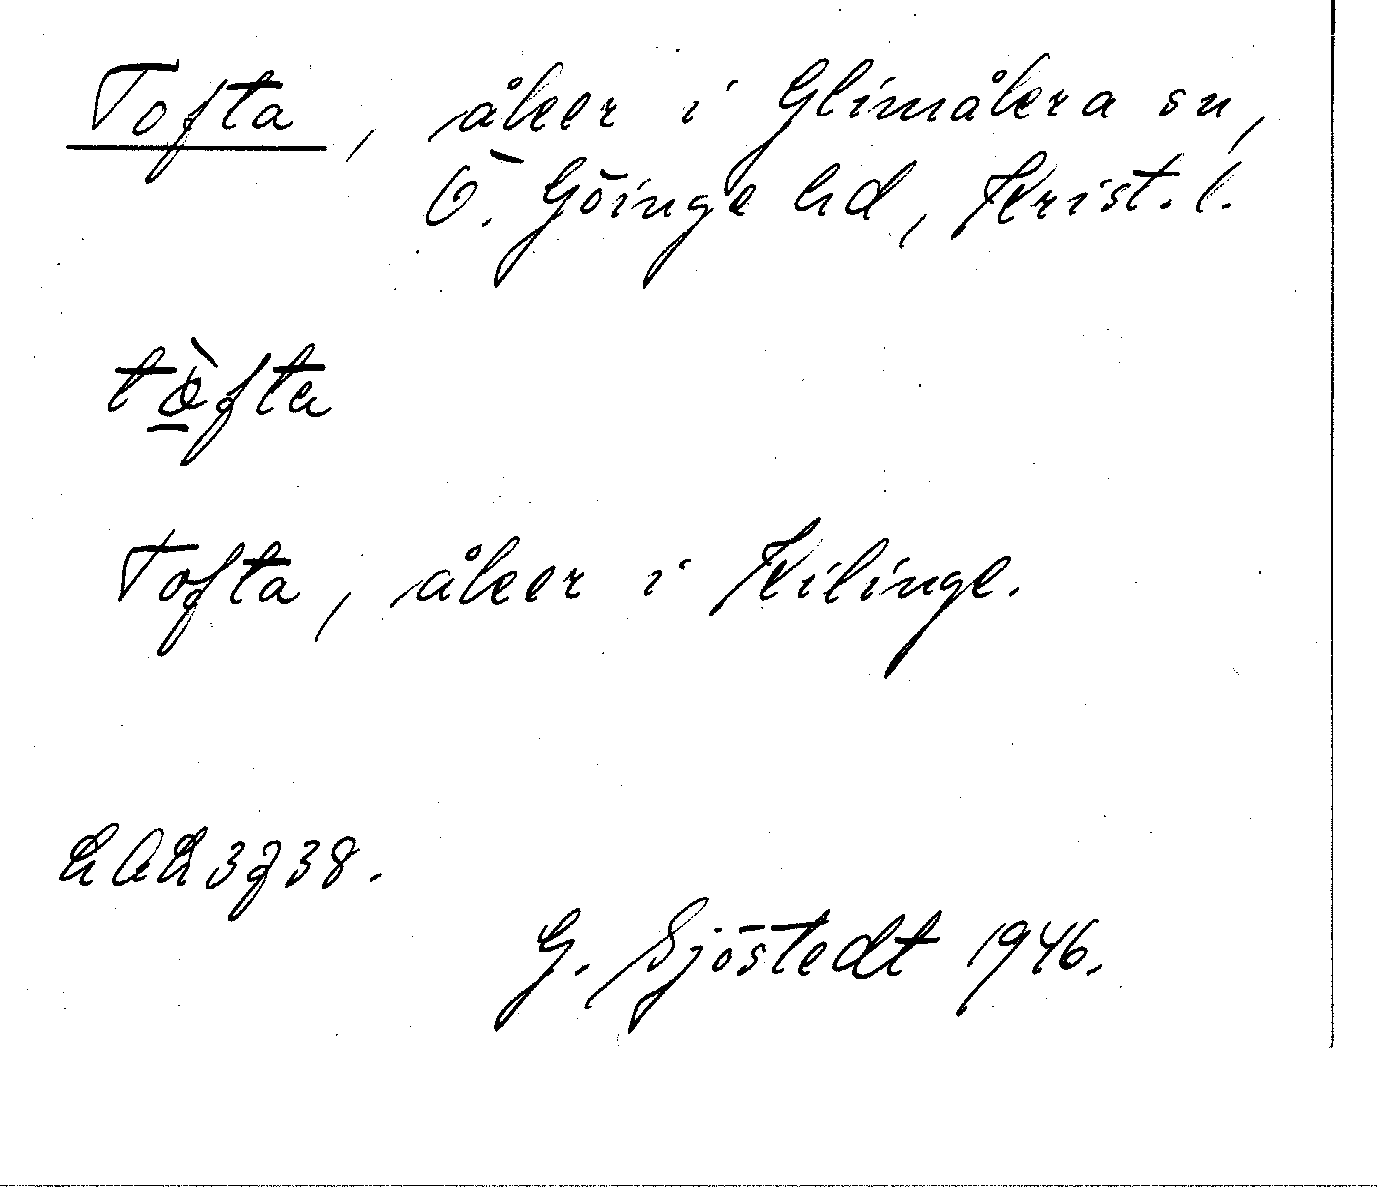 Tofta, åker i Glimåkra sn,
Ö. Göinge hd, Krist. l.
tòfta
Tofta, åker i Kilinge.
LAL 3738.
G. Sjöstedt 1946.